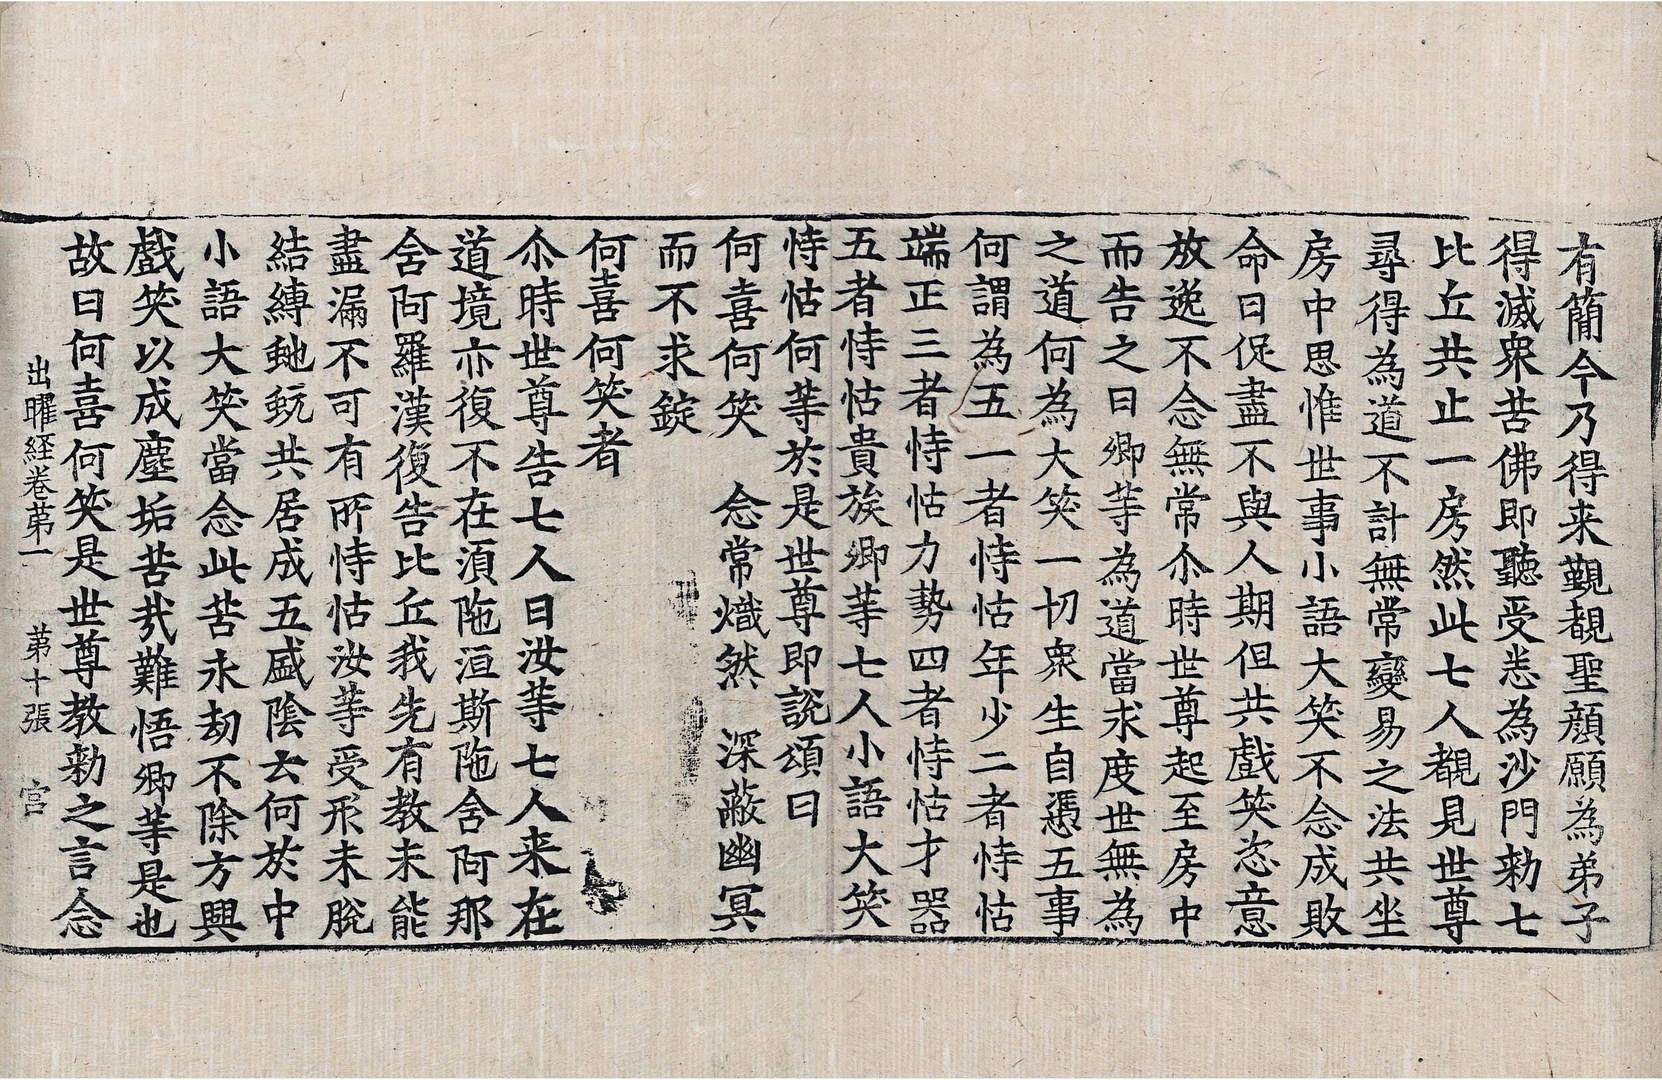 有簡今乃得来覲覩聖顔願為弟子
得滅衆苦佛即聽受恙為沙門勑七
比丘共止一房然此七人覩見世尊
尋得為道不計無常變易之法共坐
房中思惟世事小語大笑不念成敗
命日促盡不與人期但共戲笑恣意
放逸不念無常尒時世尊起至房中
而告之曰卿等為道當求度世無為
之道何為大笑一切衆生自憑五事
何謂為五一者恃怙年少二者恃怙
端正三者恃怙力勢四者恃怙才器
五者恃怙貴族卿等七人小語大笑
恃怙何等於是世尊即説頌曰
何喜何笑 念常熾然 深蔽幽冥
而不求錠
何喜何笑者
尒時世尊告七人曰汝等七人来在
道境亦復不在湏陁洹斯陁舍阿那
舍阿羅漢復告比丘我先有教未能
盡漏不可有所恃怙汝等受形未脫
結縛虵蚖共居成五盛陰云何於中
小語大笑當念此苦永劫不除方興
戲笑以成塵垢苦㢤難悟卿等是也
故曰何喜何笑是世尊教勑之言念
出曜経卷第一 第十張 宫